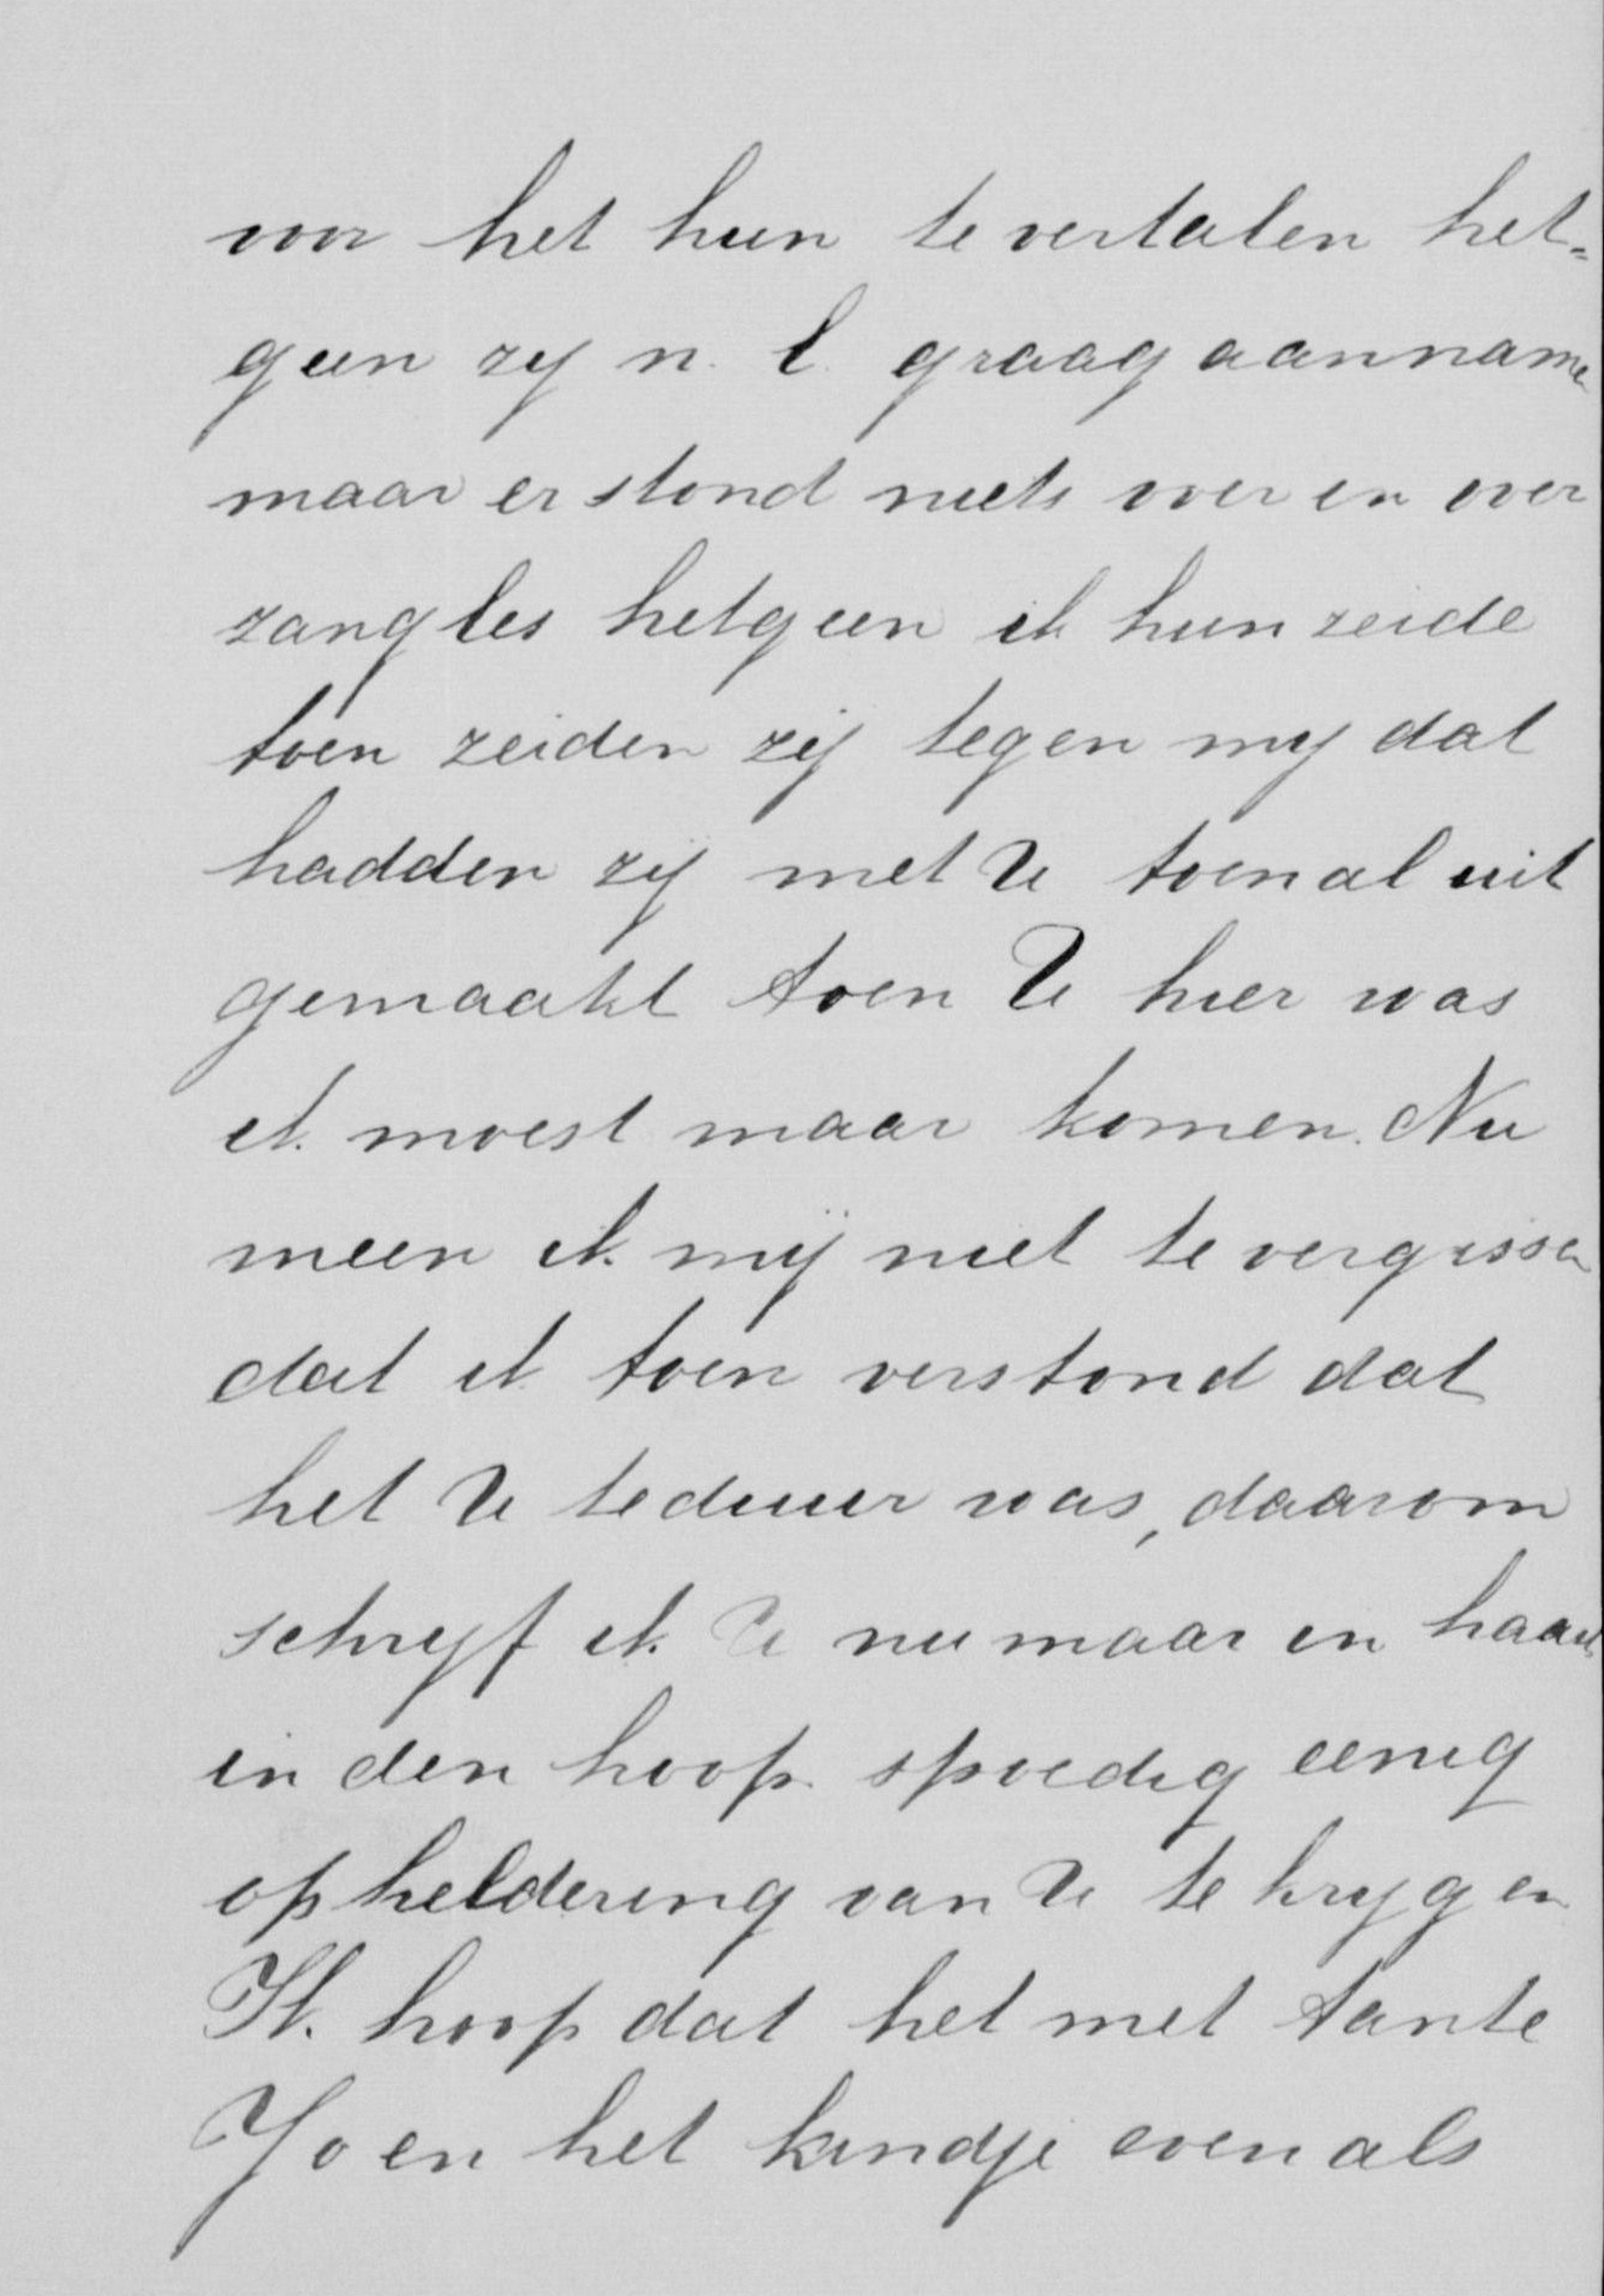 voor het hun te vertalen het=
geen zy n. l. graag aanname
maar er stond niets over in over
zangles hetgeen ik hun zeide
toen zeiden zij tegen my dat
hadden zij met U toen al uit
gemaakt toen U hier was
ik moest maar komen. Nu
meen ik mij niet te vergissen
dat ik toen verstond dat
het U te duur was, daarom
schryf ik U nu maar in haast
in den hoop spoedig eenig
opheldering van U te krygen
Ik hoop dat het met tante
Jo en het kindje even als